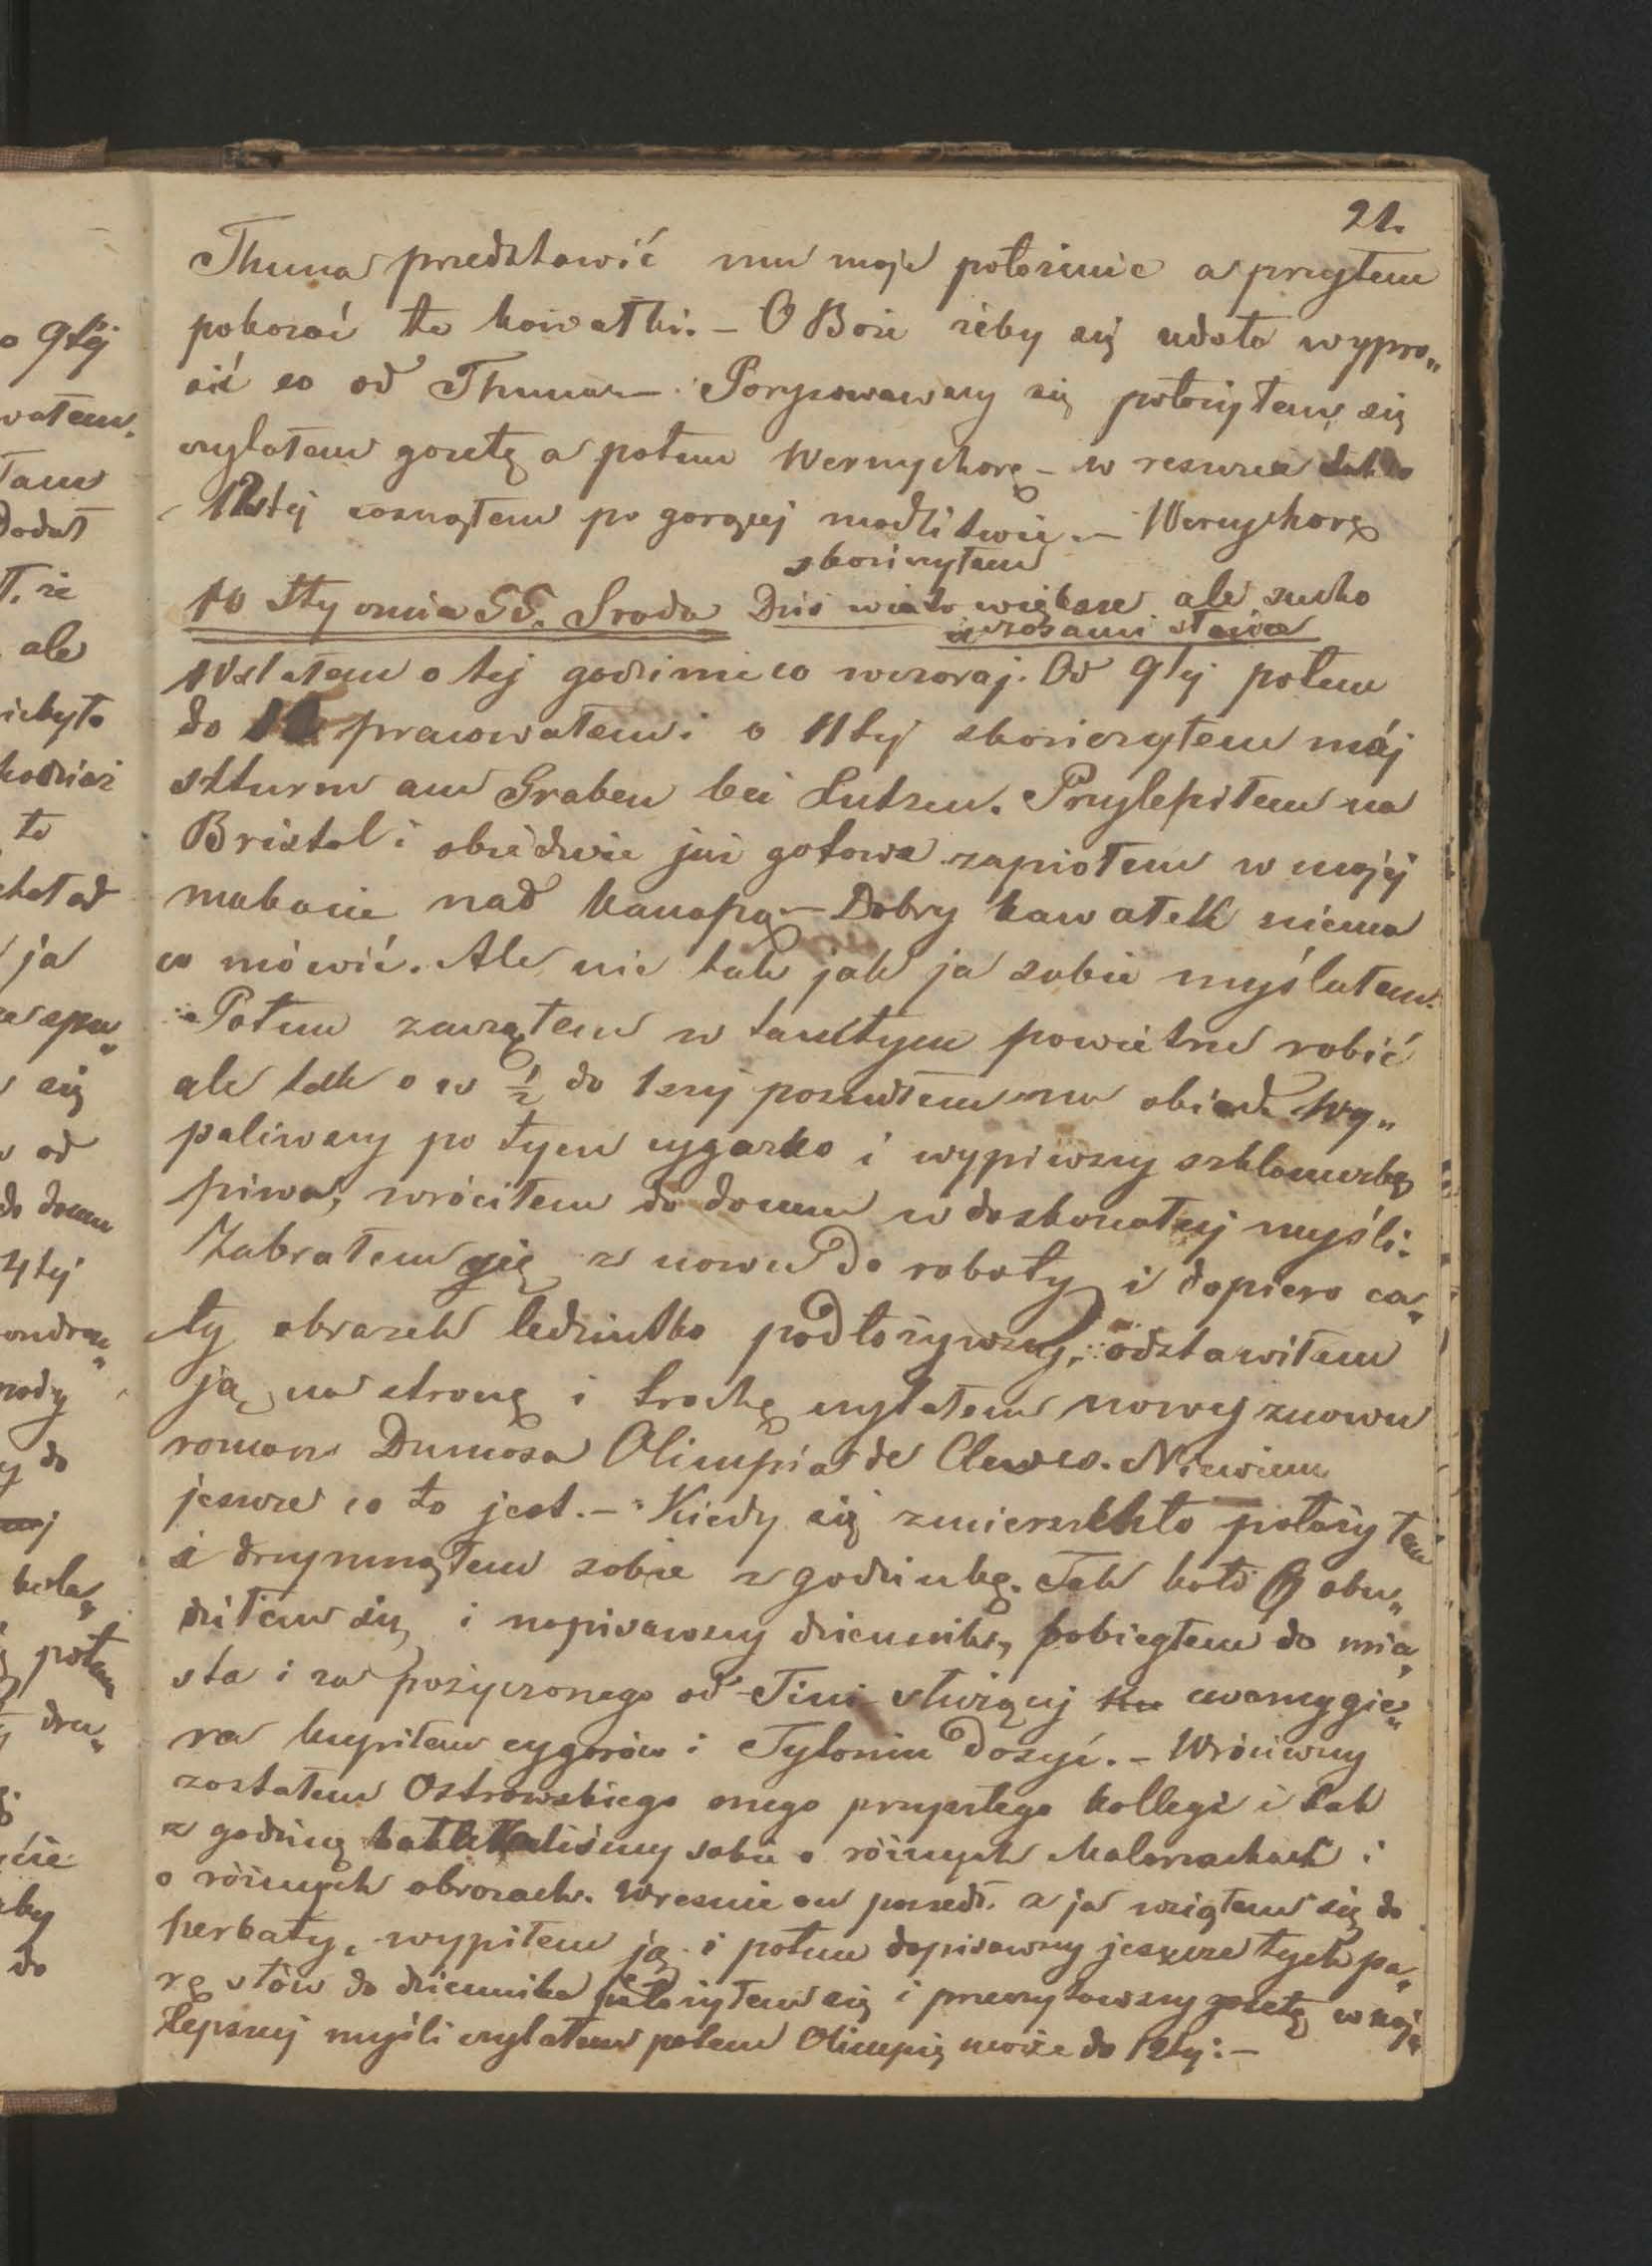 21.
Thuna przedstawić mu moje położenie a przytem
pokazać te kawałki. – O Boże żeby się udało wypro„
sić co od Thuna – Porysowawszy się położyłem się
czytałem gazetę a potem Wernyhorę – w reszcie tak o
12stej zasnąłem po gorącej modlitwie. – Wernyhorę
skończyłem
10 Stycznia 55. Środa Dziś wiatr większe ale sucho
czasami słońce
Wstałem o tej godzinie co wczoraj. Od 9tej potem
do 12 pracowałem i o 11tej skończyłem mój
Stturm am Graben bei Lutzen. Przylepiłem na
Bristol i obiedwie już gotowe zapiąłem w mojej
makacie nad kanapą – Dobry kawałek niema
co mówić. Ale nie tak jak ja sobie myślałem.
Potem zacząłem w tamtym powietrze robić
ale tak o w ½ do 1szej poszedłem na obiad. Wy„
paliwszy po tym cygarko i wypiwszy szklaneczkę
piwa, wróciłem do domu w doskonałej myśli.
Zabrałem się z nowu do roboty i dopiero ca„
ły obrazek ledziutko podłożywszy, odstawiłem
ją na stronę i trochę czytałem nowy znowu
roman Dumasa Olimpia de Cleves. Niewiem
jeszcze co to jest. – Kiedy się zmierzchło położyłem
i drzymnąłem sobie z godzinkę. Tak koło 6 obu„
dziłem się i napisawszy dziennik, pobiegłem do mia„
sta i za pożyczonego od Tini służącej cwancygie„
ra kupiłem cygarów i Tytoniu dosyć. – Wróciwszy
zastałem Ostrowskiego onego przyszłego kollegę i tak
z godzinę sobie o różnych Malarzachach i
o różnych obrazach. Wreszcie on poszedł. a ja wziąłem się do
herbaty, wypiłem ją i potem dopisawszy jeszcze tych pa„
rę słów do dziennika położyłem się i przeczytawszy gazetę w naj„
lepszej myśli czytałem potem Olimpię może do 12tej. –